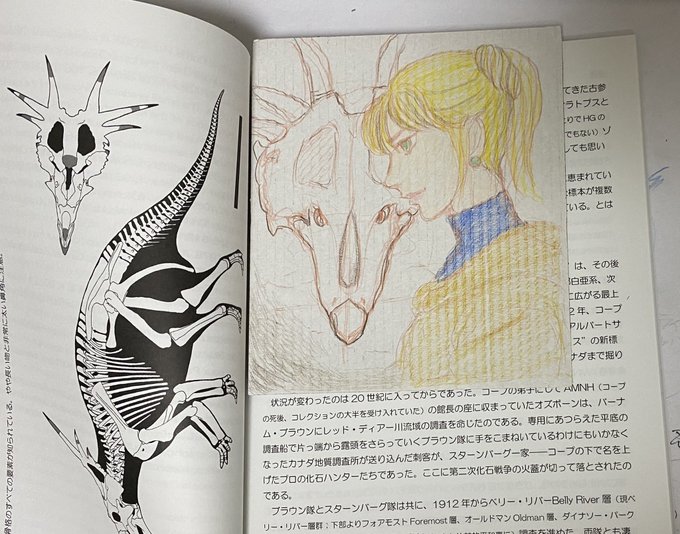 骨格のすべての要素が知られている。やや長い吻と非常に太い鼻角に注意。
てきた古参
ラトプスと
とりでHGの
でもない）ゾ
しても思い
恵まれてい
標本が複数
ている。とは
は、その後
白亜系、次
に広がる最上
2年、コープ
アルバートサ
ス”の新標
ナダまで掘り
状況が変わったのは20世紀に入ってからであった。コープの弟子にしてAMNH（コープ
の死後、コレクションの大半を受け入れていた）の館長の座に収まっていたオズボーンは、バーナ
ム・ブラウンにレッド・ディアー川流域の調査を命じたのである。専用にあつらえた平底の
調査船で片っ端から露頭をさらっていくブラウン隊に手をこまねいているわけにもいかなく
なったカナダ地質調査所が送り込んだ刺客が、スターンバーグ一家――コープの下で名を上
げたプロの化石ハンターたちであった。ここに第二次化石戦争の火蓋が切って落とされたの
である。
ブラウン隊とスターンバーグ隊は共に、1912年からベリー・リバーBelly River層（現ベ
リー・リバー層群；下部よりフォアモストForemost層、オールドマンOldman層、ダイナソー・パーク
調査を進めた。両隊とも凄